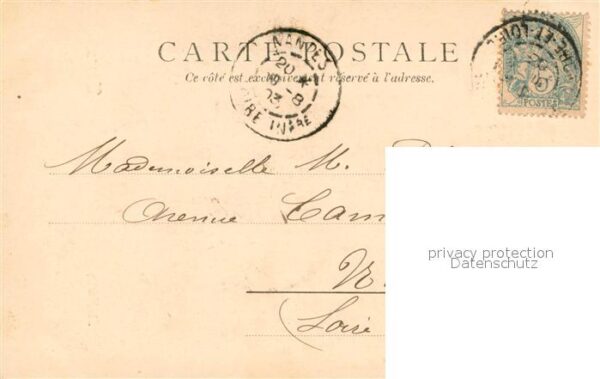 CARTE POSTALE
Ce côté est exclusivement réservé à l'adresse.
NANTES
20
8
03
LOIRE INFRE
ET-LOIRE
5
POSTES
Mademoiselle M.
Avenue Cam
N
(Loire
privacy protection
Datenschutz